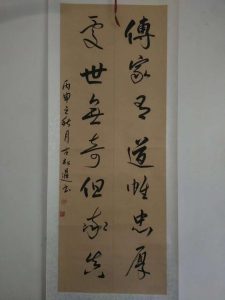 傳家有道惟忠厚
處世無奇但率真
丙申之秋月